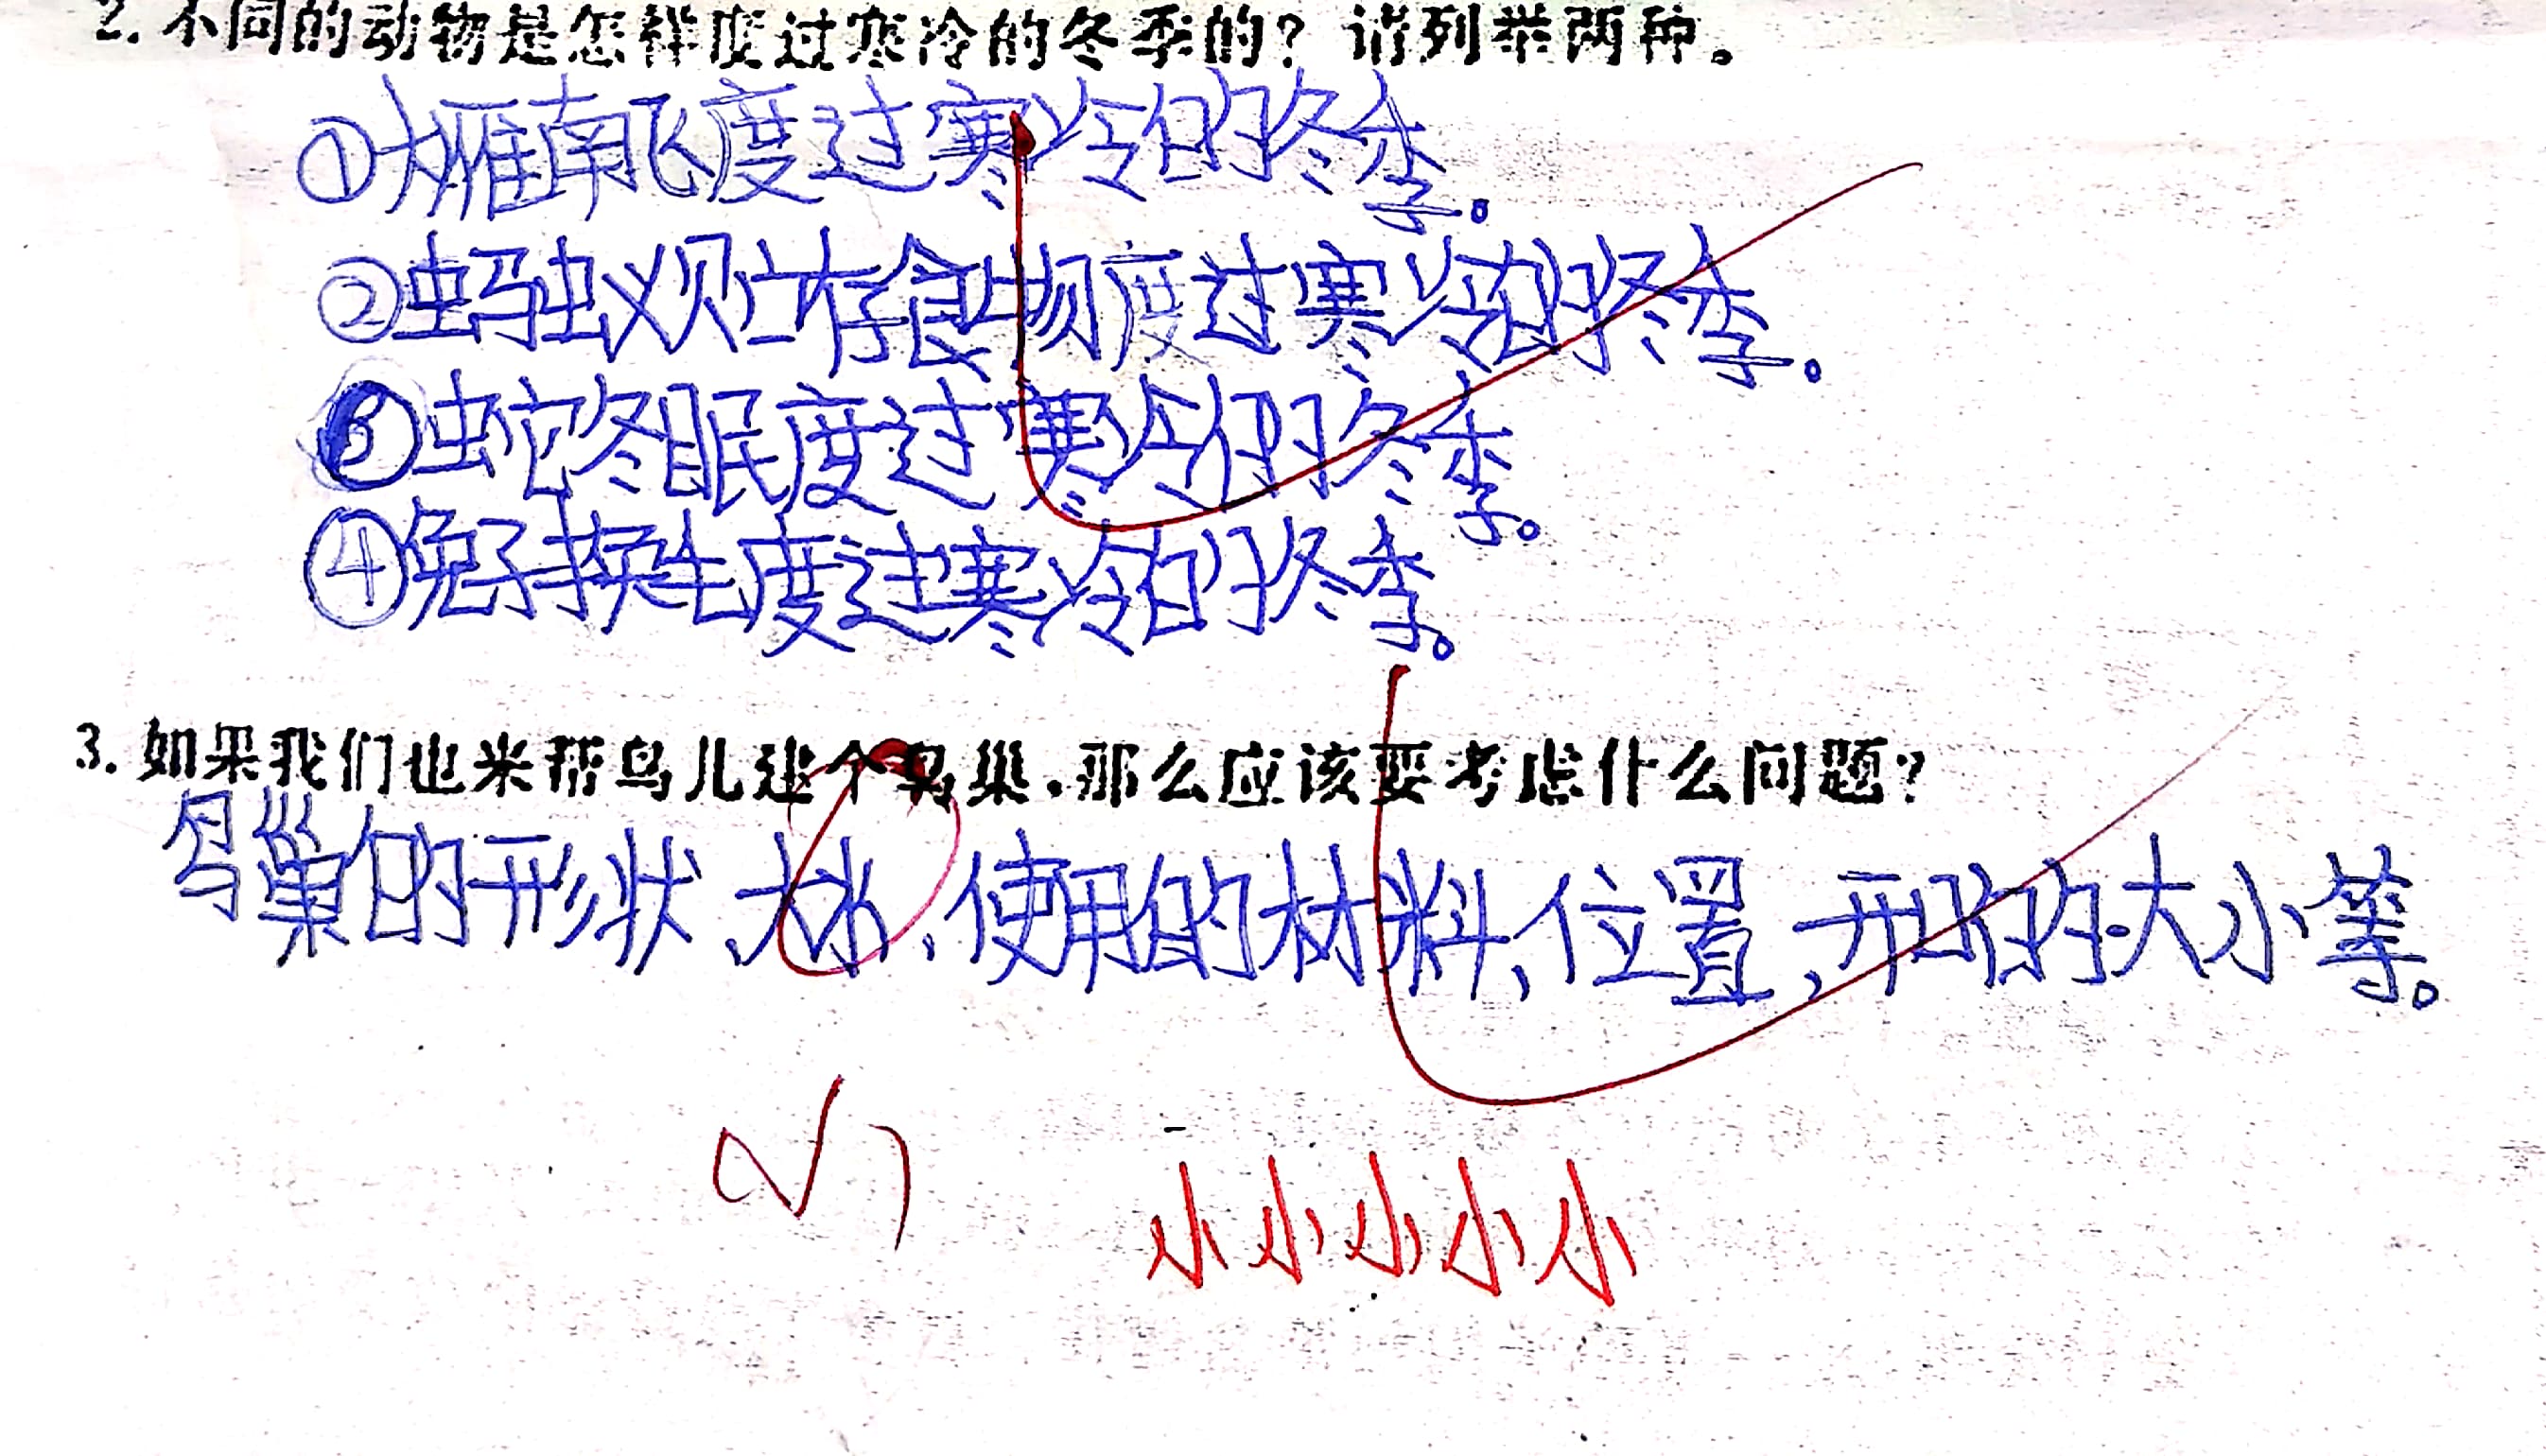 2. 不同的动物是怎样度过寒冷的冬季的？请列举两种。
①大雁南飞度过寒冷的冬季。
②蚂蚁贮存食物度过寒冷的冬季。
③蛇冬眠度过寒冷的冬季。
④兔子换毛度过寒冷的冬季。
3. 如果我们也来帮鸟儿建个鸟巢，那么应该要考虑什么问题？
鸟巢的形状、大、使用的材料、位置、开口的大小等。
小小小小小